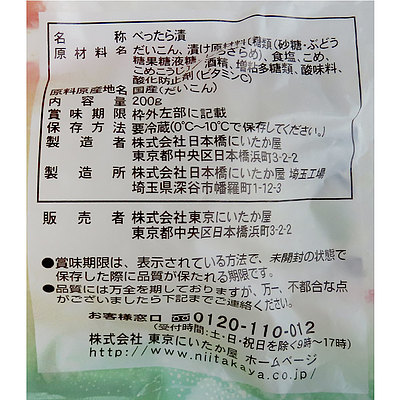 名称 べったら漬
原材料名 だいこん、漬け原材料〔糖類(砂糖・ぶどう
糖果糖液糖、ざらめ)、食塩、こめ、
こめこうじ〕/酒精、増粘多糖類、酸味料、
酸化防止剤(ビタミンC)
原料原産地名 国産(だいこん)
内容量 200g
賞味期限 枠外左部に記載
保存方法 要冷蔵(0℃~10℃で保存してください。)
製造者 株式会社日本橋にいたか屋
東京都中央区日本橋浜町3-2-2
製造所 株式会社日本橋にいたか屋 埼玉工場
埼玉県深谷市幡羅町1-12-3
販売者 株式会社東京にいたか屋
東京都中央区日本橋浜町3-2-2
●賞味期限は、表示されている方法で、未開封の状態で
保存した際に品質が保たれる期限です。
●品質には万全を期しておりますが、万一、不都合な点
がございましたら下記までご連絡ください。
お客様窓口 0120-110-012
(受付時間:土・日・祝日を除く9時~17時)
株式会社 東京にいたか屋 ホームページ
http://www.niitakaya.co.jp/